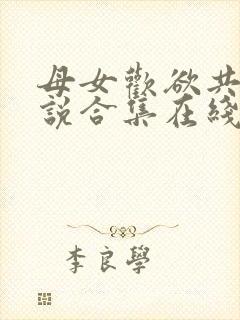 母女歡欲共
說合集在綫
李良學